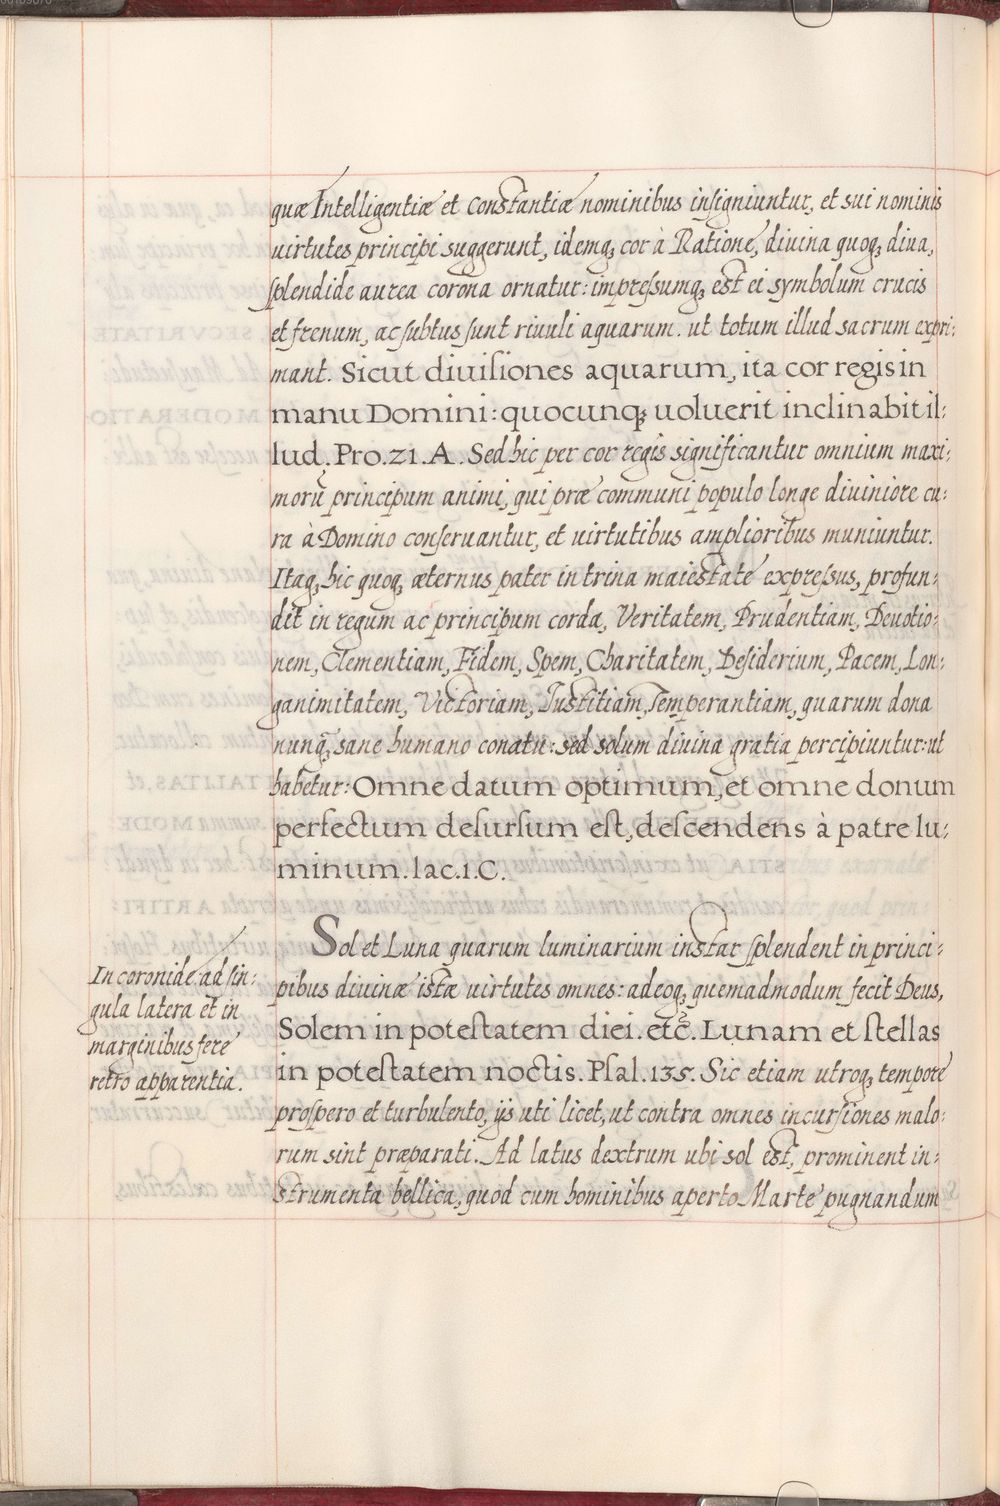 quæ Intelligentiæ et Constantiæ nominibus insigniuntur, et sui nominis
uirtutes principi suggerunt, idemq; cor à Ratione, diuina quoq; diua,
splendide aurea corona ornatur: impressumq; est ei symbolum crucis
et frenum, ac subtus sunt riuuli aquarum. ut totum illud sacrum expri:
mant. Sicut diuisiones aquarum, ita cor regis in
manu Domini: quocunq; uoluerit inclinabit il:
lud. Pro. 21. A. Sed hic per cor regis significantur omnium maxi:
morũ principum animi, qui præ communi populo longe diuiniore cu:
ra à Domino conseruantur, et uirtutibus amplioribus muniuntur.
Itaq; hic quoq; æternus pater in trina maiestate expressus, profun:
dit in regum ac principum corda, Veritatem, Prudentiam, Deuotio:
nem, Clementiam, Fidem, Spem, Charitatem, Desiderium, Pacem, Lon:
ganimitatem, Victoriam, Iustitiam, Temperantiam, quarum dona
nunq̃, sane humano conatu: sed solum diuina gratia percipiuntur: ut
habetur: Omne datum optimum, et omne donum
perfectum desursum est, descendens à patre lu:
minum. Iac. 1. C.
Sol et Luna quarum luminarium instar splendent in princi:
pibus diuinæ istæ uirtutes omnes: adeoq; quemadmodum fecit Deus,
Solem in potestatem diei. etc̃. Lunam et stellas
in potestatem noctis. Psal. 135. Sic etiam utroq; tempore
prospero et turbulento, ijs uti licet, ut contra omnes incursiones malo:
rum sint præparati. Ad latus dextrum ubi sol est, prominent in:
strumenta bellica, quod cum hominibus aperto Marte pugnandum
In coronide ad sin:
gula latera et in
marginibus fere
retro apparentia.